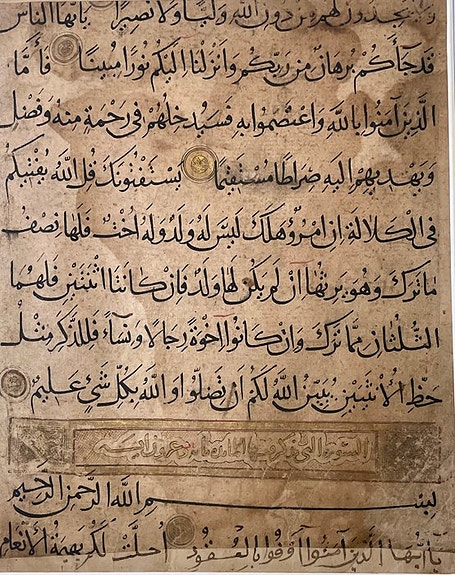 يجدون لهم من دون الله وليا ولا نصيرا يا ايها الناس
قد جاءكم برهان من ربكم وانزلنا اليكم نورا مبينا فاما
الذين آمنوا بالله واعتصموا به فسيدخلهم في رحمة منه وفضل
ويهديهم اليه صراطا مستقيما يستفتونك قل الله يفتيكم
في الكلالة ان امرؤ هلك ليس له ولد وله اخت فلها نصف
ما ترك وهو يرثها ان لم يكن لها ولد فان كانتا اثنتين فلهما
الثلثان مما ترك وان كانوا اخوة رجالا ونساء فللذكر مثل
حظ الانثيين يبين الله لكم ان تضلوا والله بكل شيء عليم
السورة التي يذكر فيها المائدة
بسم الله الرحمن الرحيم
يا ايها الذين آمنوا اوفوا بالعقود احلت لكم بهيمة الانعام